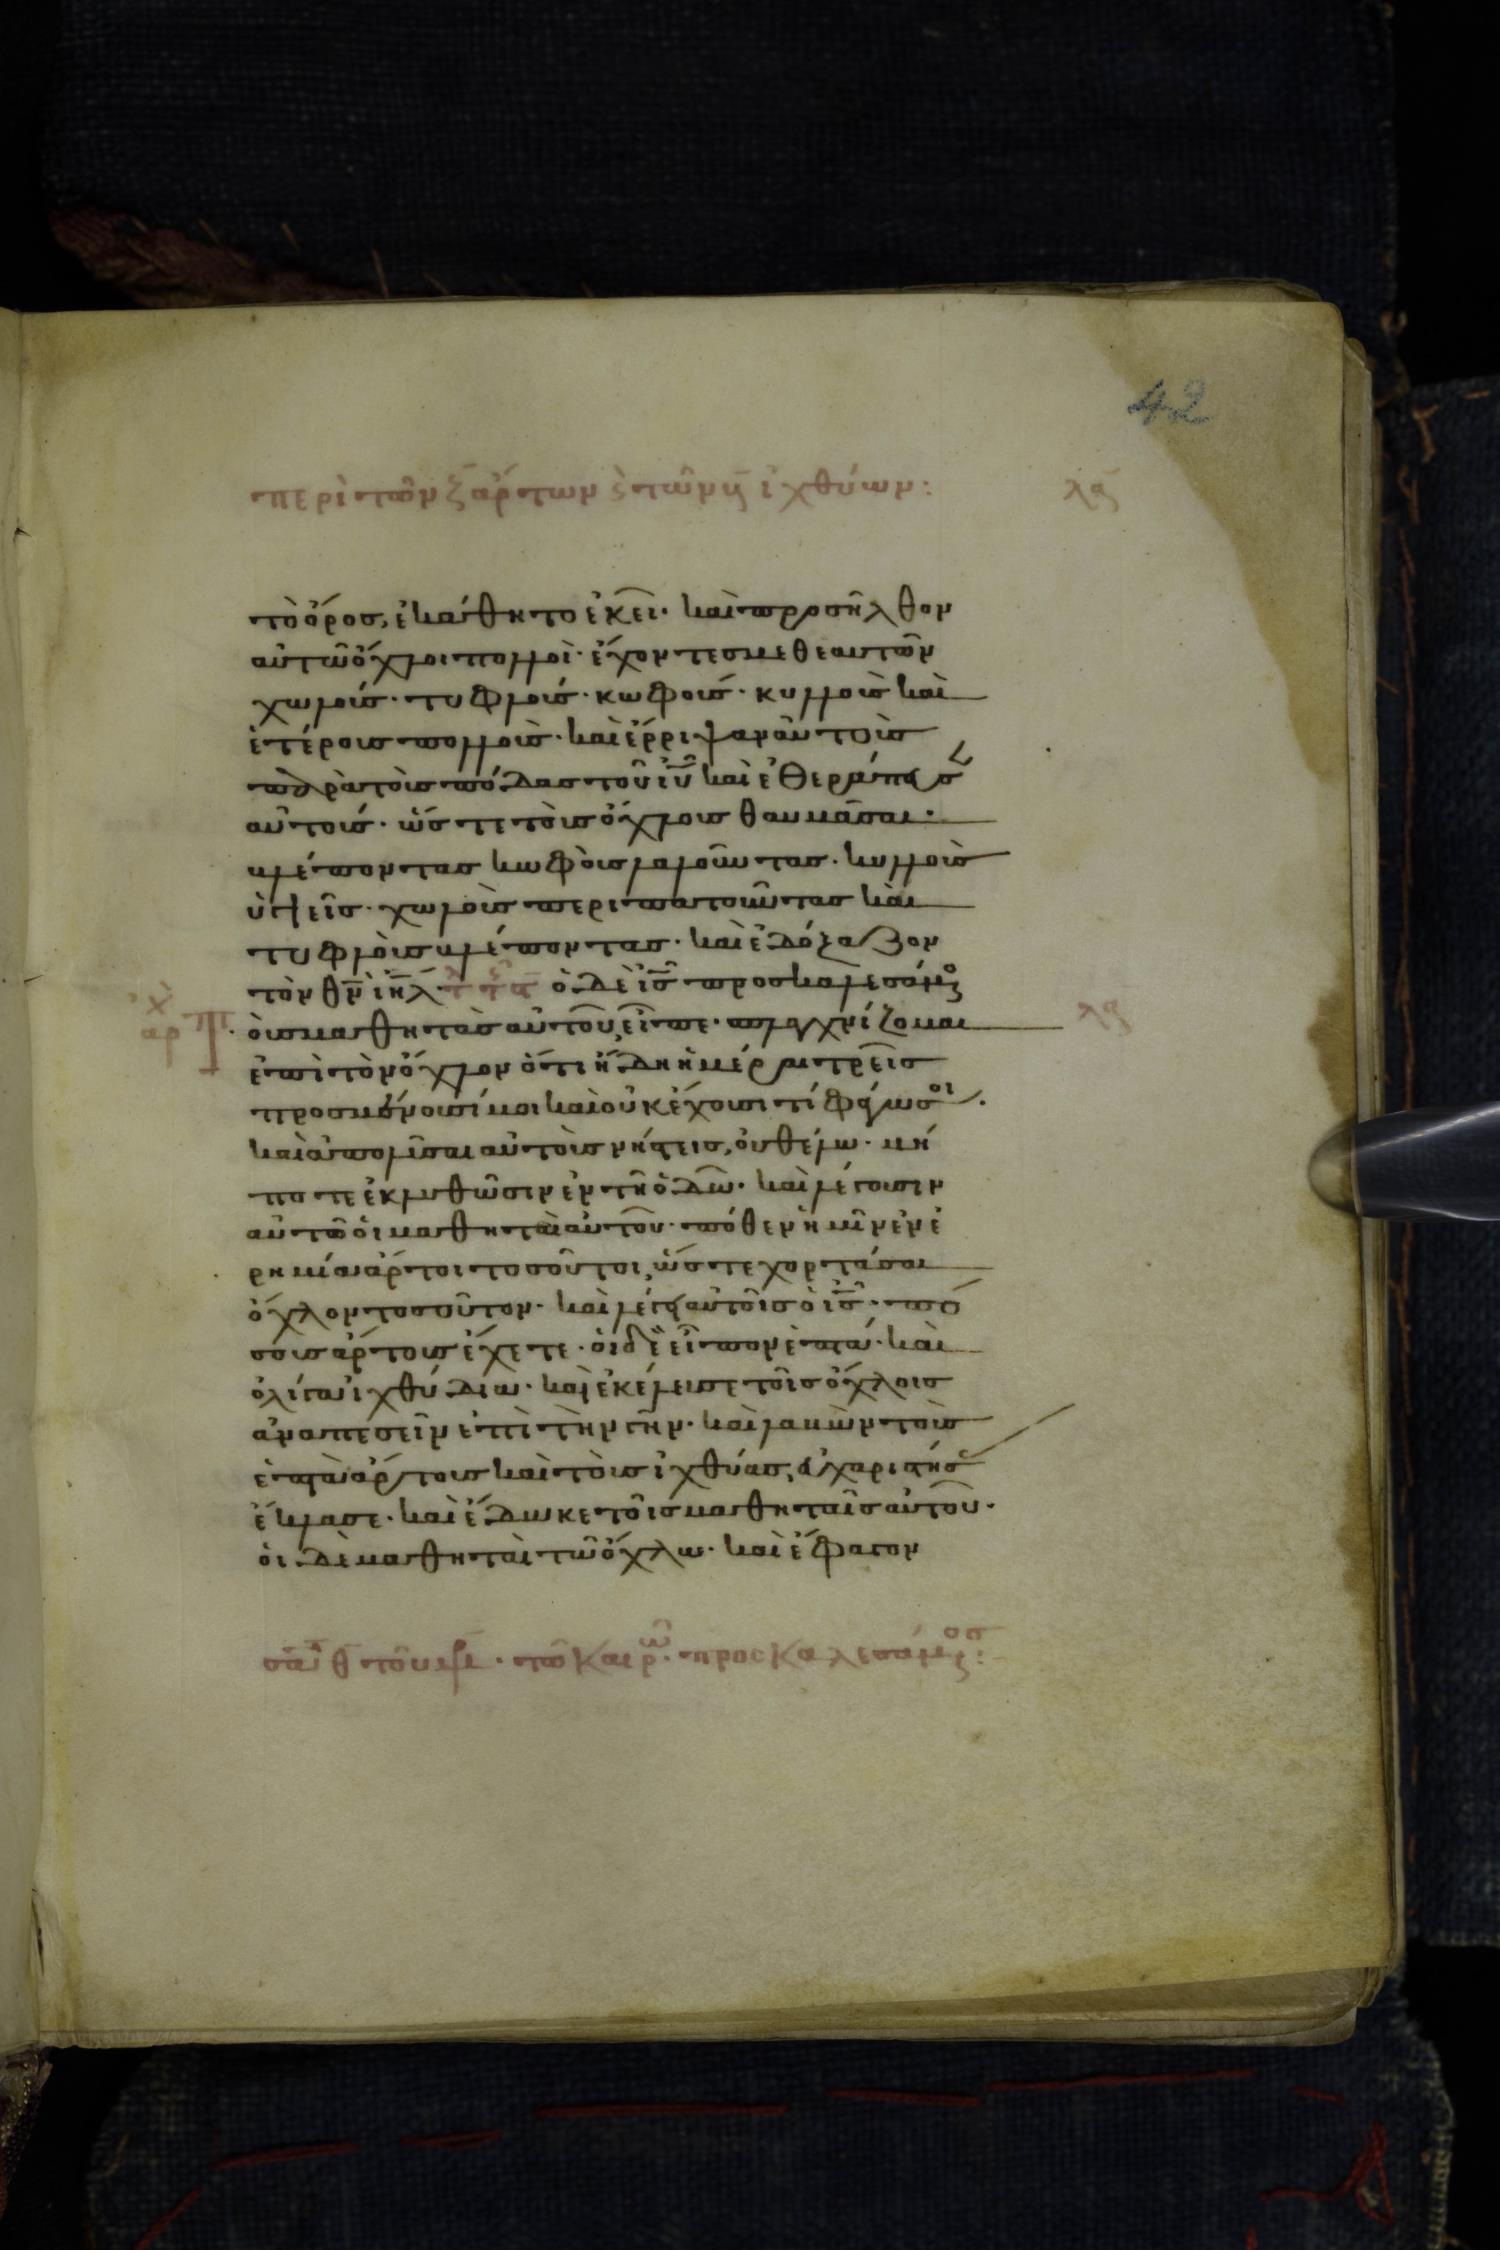 42
περὶ τῶν ζ ἄρτων ϛ τῶν ἰχθύων: λϛ
τὸ ὄρος, ἐκάθητο ἐκεῖ· καὶ προσῆλθον
αὐτῶ ὄχλοι πολλοὶ· ἔχοντες μεθ εαυτῶν
χωλούς· τυφλούς· κωφούς· κυλλοὺς καὶ
ἑτέρους πολλοὺς· καὶ ἔρριψαν αὐτοὺς
παρὰ τοὺς πόδας τοῦ ιῦ καὶ ἐθεράπευσ
αὐτούς· ὥστε τοὺς ὄχλους θαυμᾶσαι·
βλέποντας κωφοὺς λαλοῦντας· κυλλοὺς
ὑγιεῖς· χωλοὺς περιπατοῦντας καὶ
τυφλοὺς βλέποντας· καὶ ἐδόξαζον
τὸν θν ιηλ ὁ δὲ ις προσκαλεσάμεν
αρ τοὺς μαθητὰς αὐτοῦ, εἶπε· σπλαγχνίζομαι λϛ
ἐπὶ τὸν ὄχλον ὅτι ἤδη ἡμέραι τρεῖς
προσμένουσί μοι καὶ οὐκ ἔχουσι τί φάγωσοι·
καὶ ἀπολῦσαι αὐτοὺς νήστεις, οὐ θέλω· μή
ποτε ἐκλυθῶσιν ἐν τῆ ὁδῶ· καὶ λέγουσιν
αὐτῶ οἱ μαθηταὶ αὐτοῦ· πόθεν ἡμῖν ἐν ἐ
ρημία ἄρτοι τοσοῦτοι, ὥστε χορτάσαι
ὄχλον τοσοῦτον· καὶ λέγει αὐτοῖς ὁ ις· πό
σους ἄρτους ἔχετε· οἱ δὲ εἶπον ἑπτά· καὶ
ὀλίγα ἰχθύδια· καὶ ἐκέλευσε τοῖς ὄχλοις
ἀναπεσεῖν ἐπὶ τὴν γῆν· καὶ λαβὼν τοὺς
ἑπτὰ ἄρτους καὶ τοὺς ἰχθύας, εὐχαριστήσ
ἔκλασε· καὶ ἔδωκε τοῖς μαθηταῖς αὐτοῦ·
οἱ δὲ μαθηταὶ τῶ ὄχλω· καὶ ἔφαγον
τῶ καιρῶ· προσκαλεσάμεος: